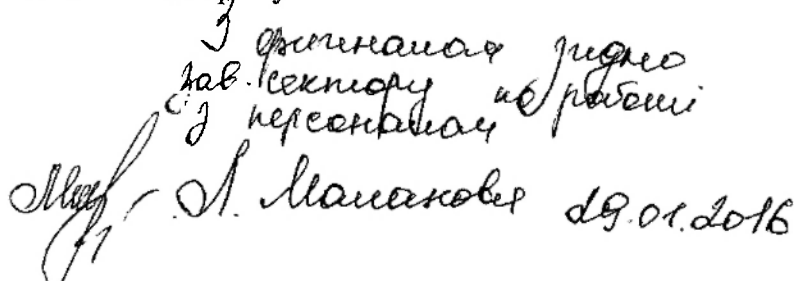 З оригіналом згідно
зав. сектору по роботі
з персоналом
Л. Малахова 29.01.2016